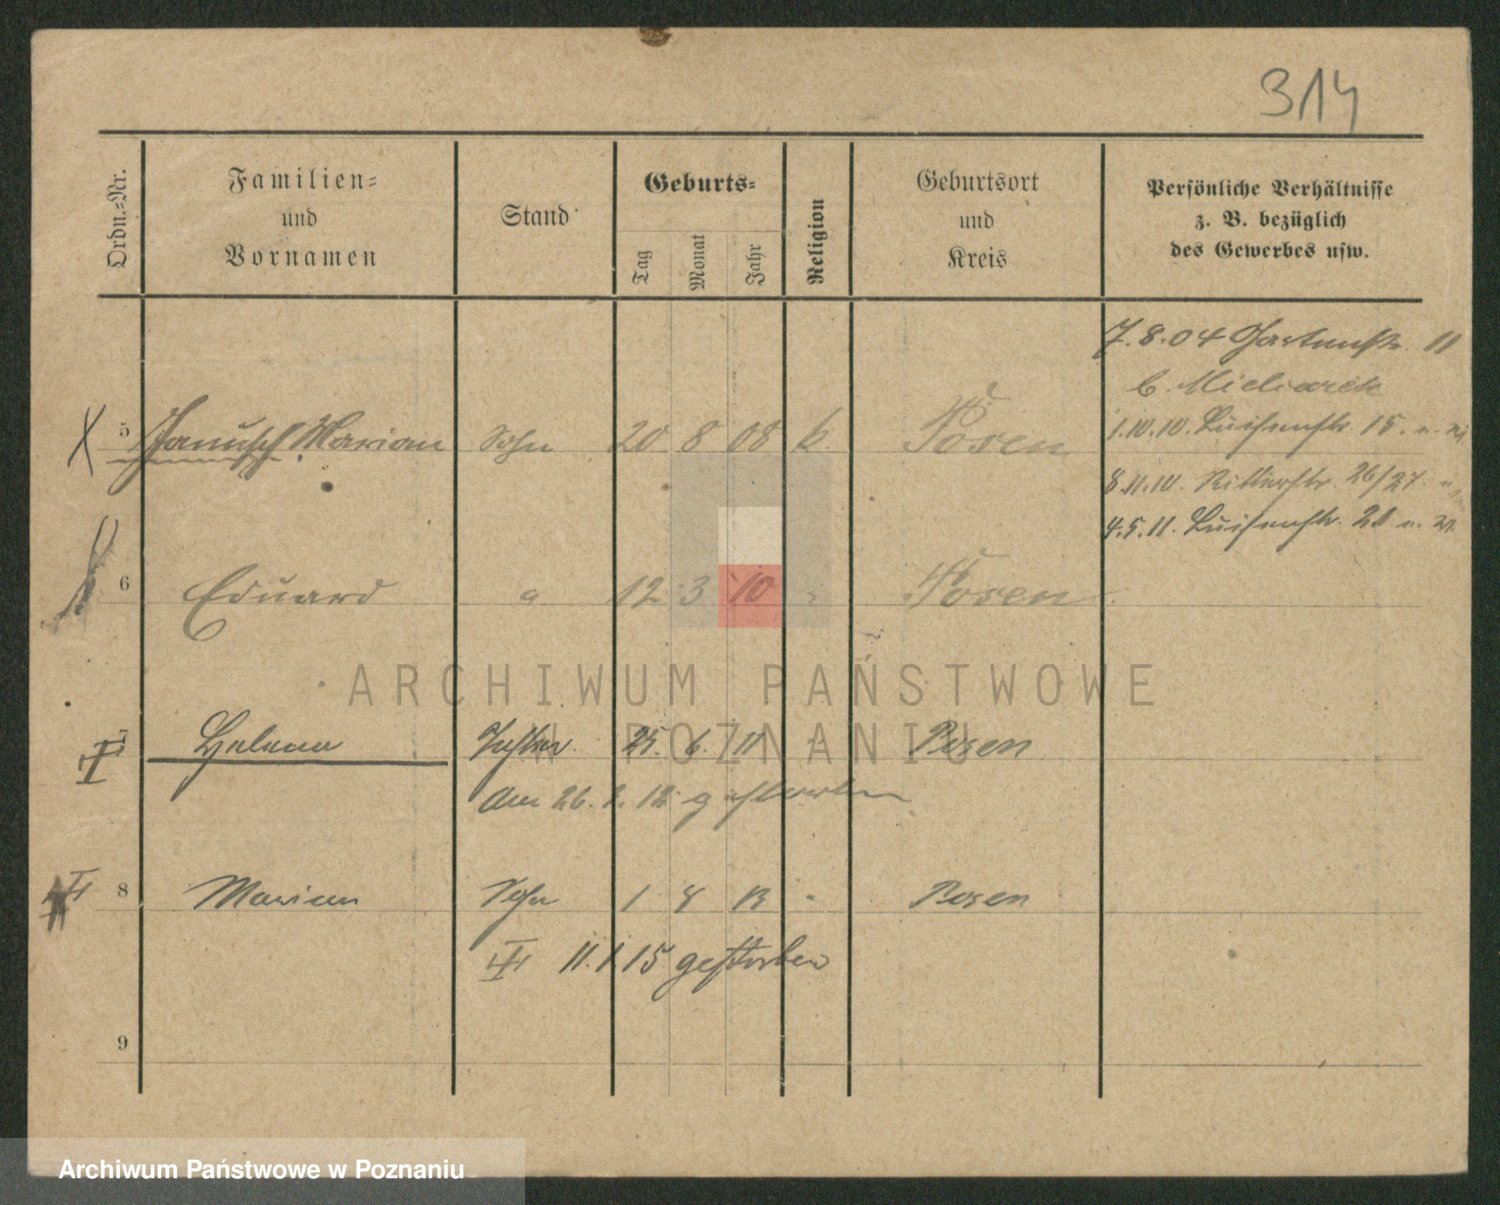 314
Ordn.-Nr.
Familien-
und
Vornamen
Stand
Geburts-
Tag
Monat
Jahr
Religion
Geburtsort
und
Kreis
Persönliche Verhältnisse
z. B. bezüglich
des Gewerbes usw.
7.8.04 Gartenstr. 11
b.
5 Janusch Marian Sohn 20 8 08 k. Posen
1.10.10. Luisenstr. 15.
8.11.10. Ritterstr. 26/27
4.5.11. Luisenstr. 21
6 Eduard 12 3 10 Posen
ARCHIWUM PAŃSTWOWE
W POZNANIU
7 Helena Tochter 25. 6. 11 Posen
Am 26. 12 gestorben
8 Marian Sohn 1 8 13 " Posen
11.1.15 gestorben
9
Archiwum Państwowe w Poznaniu